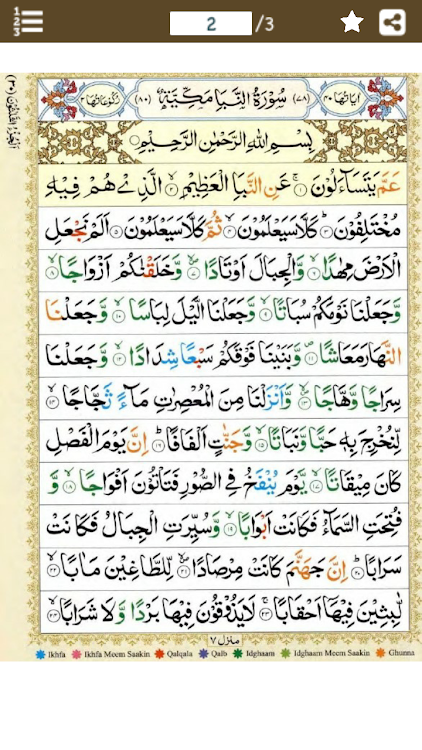 1 2 3
2 /3
اٰیاتها ۴۰ (۷۸) سُوْرَةُ النَّبَاِ مَكِّیَّةٌ (۸۰) رُكُوْعَاتُهَا ۲
بِسْمِ اللّٰهِ الرَّحْمٰنِ الرَّحِیْمِ
عَمَّ یَتَسَآءَلُوْنَ ۱ عَنِ النَّبَاِ الْعَظِیْمِ ۲ الَّذِیْ هُمْ فِیْهِ
مُخْتَلِفُوْنَ ۳ كَلَّا سَیَعْلَمُوْنَ ۴ ثُمَّ كَلَّا سَیَعْلَمُوْنَ ۵ اَلَمْ نَجْعَلِ
الْاَرْضَ مِهٰدًا ۶ وَّالْجِبَالَ اَوْتَادًا ۷ وَّخَلَقْنٰكُمْ اَزْوَاجًا ۸
وَّجَعَلْنَا نَوْمَكُمْ سُبَاتًا ۹ وَّجَعَلْنَا الَّیْلَ لِبَاسًا ۱۰ وَّجَعَلْنَا
النَّهَارَ مَعَاشًا ۱۱ وَّبَنَیْنَا فَوْقَكُمْ سَبْعًا شِدَادًا ۱۲ وَّجَعَلْنَا
سِرَاجًا وَّهَّاجًا ۱۳ وَّاَنْزَلْنَا مِنَ الْمُعْصِرٰتِ مَآءً ثَجَّاجًا ۱۴
لِّنُخْرِجَ بِهٖ حَبًّا وَّنَبَاتًا ۱۵ وَّجَنّٰتٍ اَلْفَافًا ۱۶ اِنَّ یَوْمَ الْفَصْلِ
كَانَ مِیْقَاتًا ۱۷ یَّوْمَ یُنْفَخُ فِی الصُّوْرِ فَتَاْتُوْنَ اَفْوَاجًا ۱۸ وَّ
فُتِحَتِ السَّمَآءُ فَكَانَتْ اَبْوَابًا ۱۹ وَّسُیِّرَتِ الْجِبَالُ فَكَانَتْ
سَرَابًا ۲۰ اِنَّ جَهَنَّمَ كَانَتْ مِرْصَادًا ۲۱ لِّلطَّاغِیْنَ مَاٰبًا ۲۲
لّٰبِثِیْنَ فِیْهَاۤ اَحْقَابًا ۲۳ لَا یَذُوْقُوْنَ فِیْهَا بَرْدًا وَّلَا شَرَابًا ۲۴
منزل ۷
Ikhfa Ikhfa Meem Saakin Qalqala Qalb Idghaam Idghaam Meem Saakin Ghunna